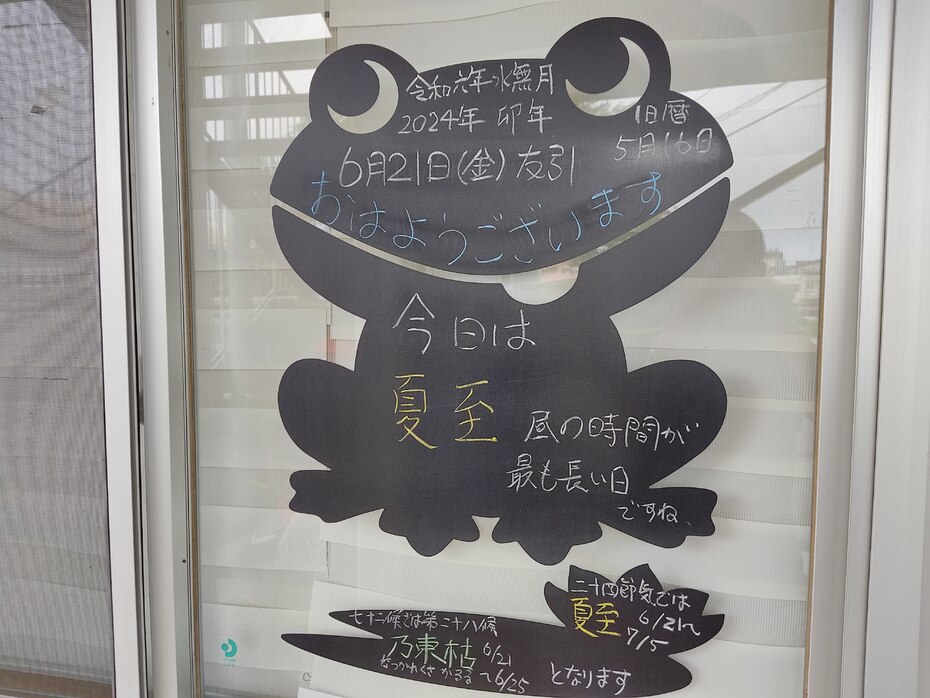 令和六年水無月
2024年 卯年
旧暦
5月16日
6月21日(金) 友引
おはようございます
今日は
夏至
昼の時間が
最も長い日
ですね、
二十四節気では
夏至 6/21〜
7/5
七十二候では第二十八候
乃東枯 6/21
なつかれくさ かるる 〜6/25
となります